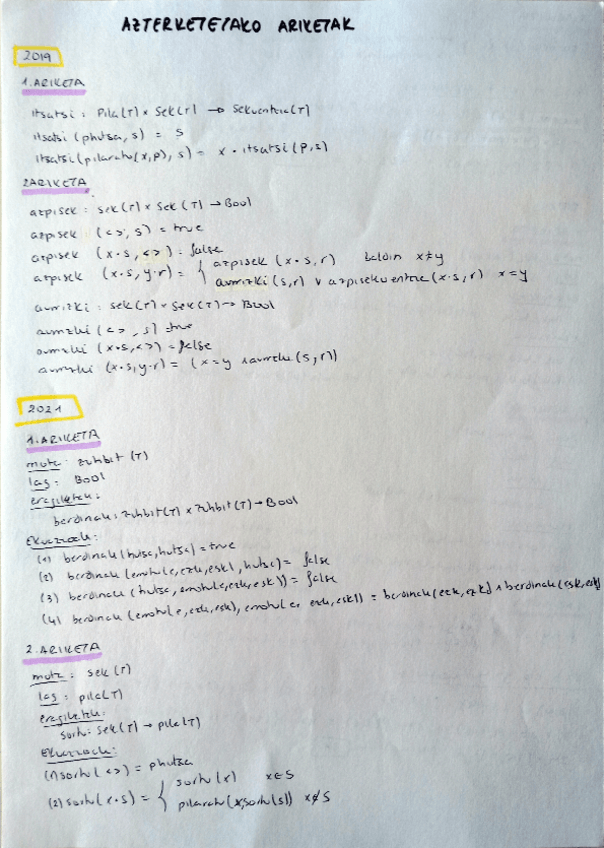 AZTERKETETAKO ARIKETAK
2019
1. ARIKETA
itsatsi : Pila(T) x Sek(T) → Sekuentzia(T)
itsatsi (phutsa, s) = s
itsatsi (pilaratu(x,p), s) = x • itsatsi (p,s)
2ARIKETA
azpisek : sek(T) x Sek (T) → Bool
azpisek (<>, s) = true
azpisek (x•s, <>) = false
azpisek (x•s, y•r) = { azpisek (x•s, r) baldin x≠y
aurrizki (s,r) v azpisekuentzia (x•s, r) x=y
aurrizki : sek(T) x Sek(T) → Bool
aurrizki (<>, s) = true
aurrizki (x•s, <>) = false
aurrizki (x•s, y•r) = (x=y ∧ aurrizki (s,r))
2021
1. ARIKETA
mota: zuhbit (T)
lag : Bool
eragiketak :
berdinak : zuhbit(T) x zuhbit(T) → Bool
Ekuazioak :
(1) berdinak (hutsa, hutsa) = true
(2) berdinak (errotu(e, ezk, esk), hutsa) = false
(3) berdinak (hutsa, errotu(e, ezk, esk)) = false
(4) berdinak (errotu(e, ezk, esk), errotu(e, ezk, esk)) = berdinak (ezk, ezk) ∧ berdinak (esk, esk)
2. ARIKETA
mota : sek (T)
lag : pila(T)
eragiketak :
sortu : sek(T) → pila(T)
Ekuazioak :
(1) sortu (<>) = phutsa
(2) sortu (x•s) = { sortu (x) x∈S
pilaratu (x, sortu(s)) x∉S